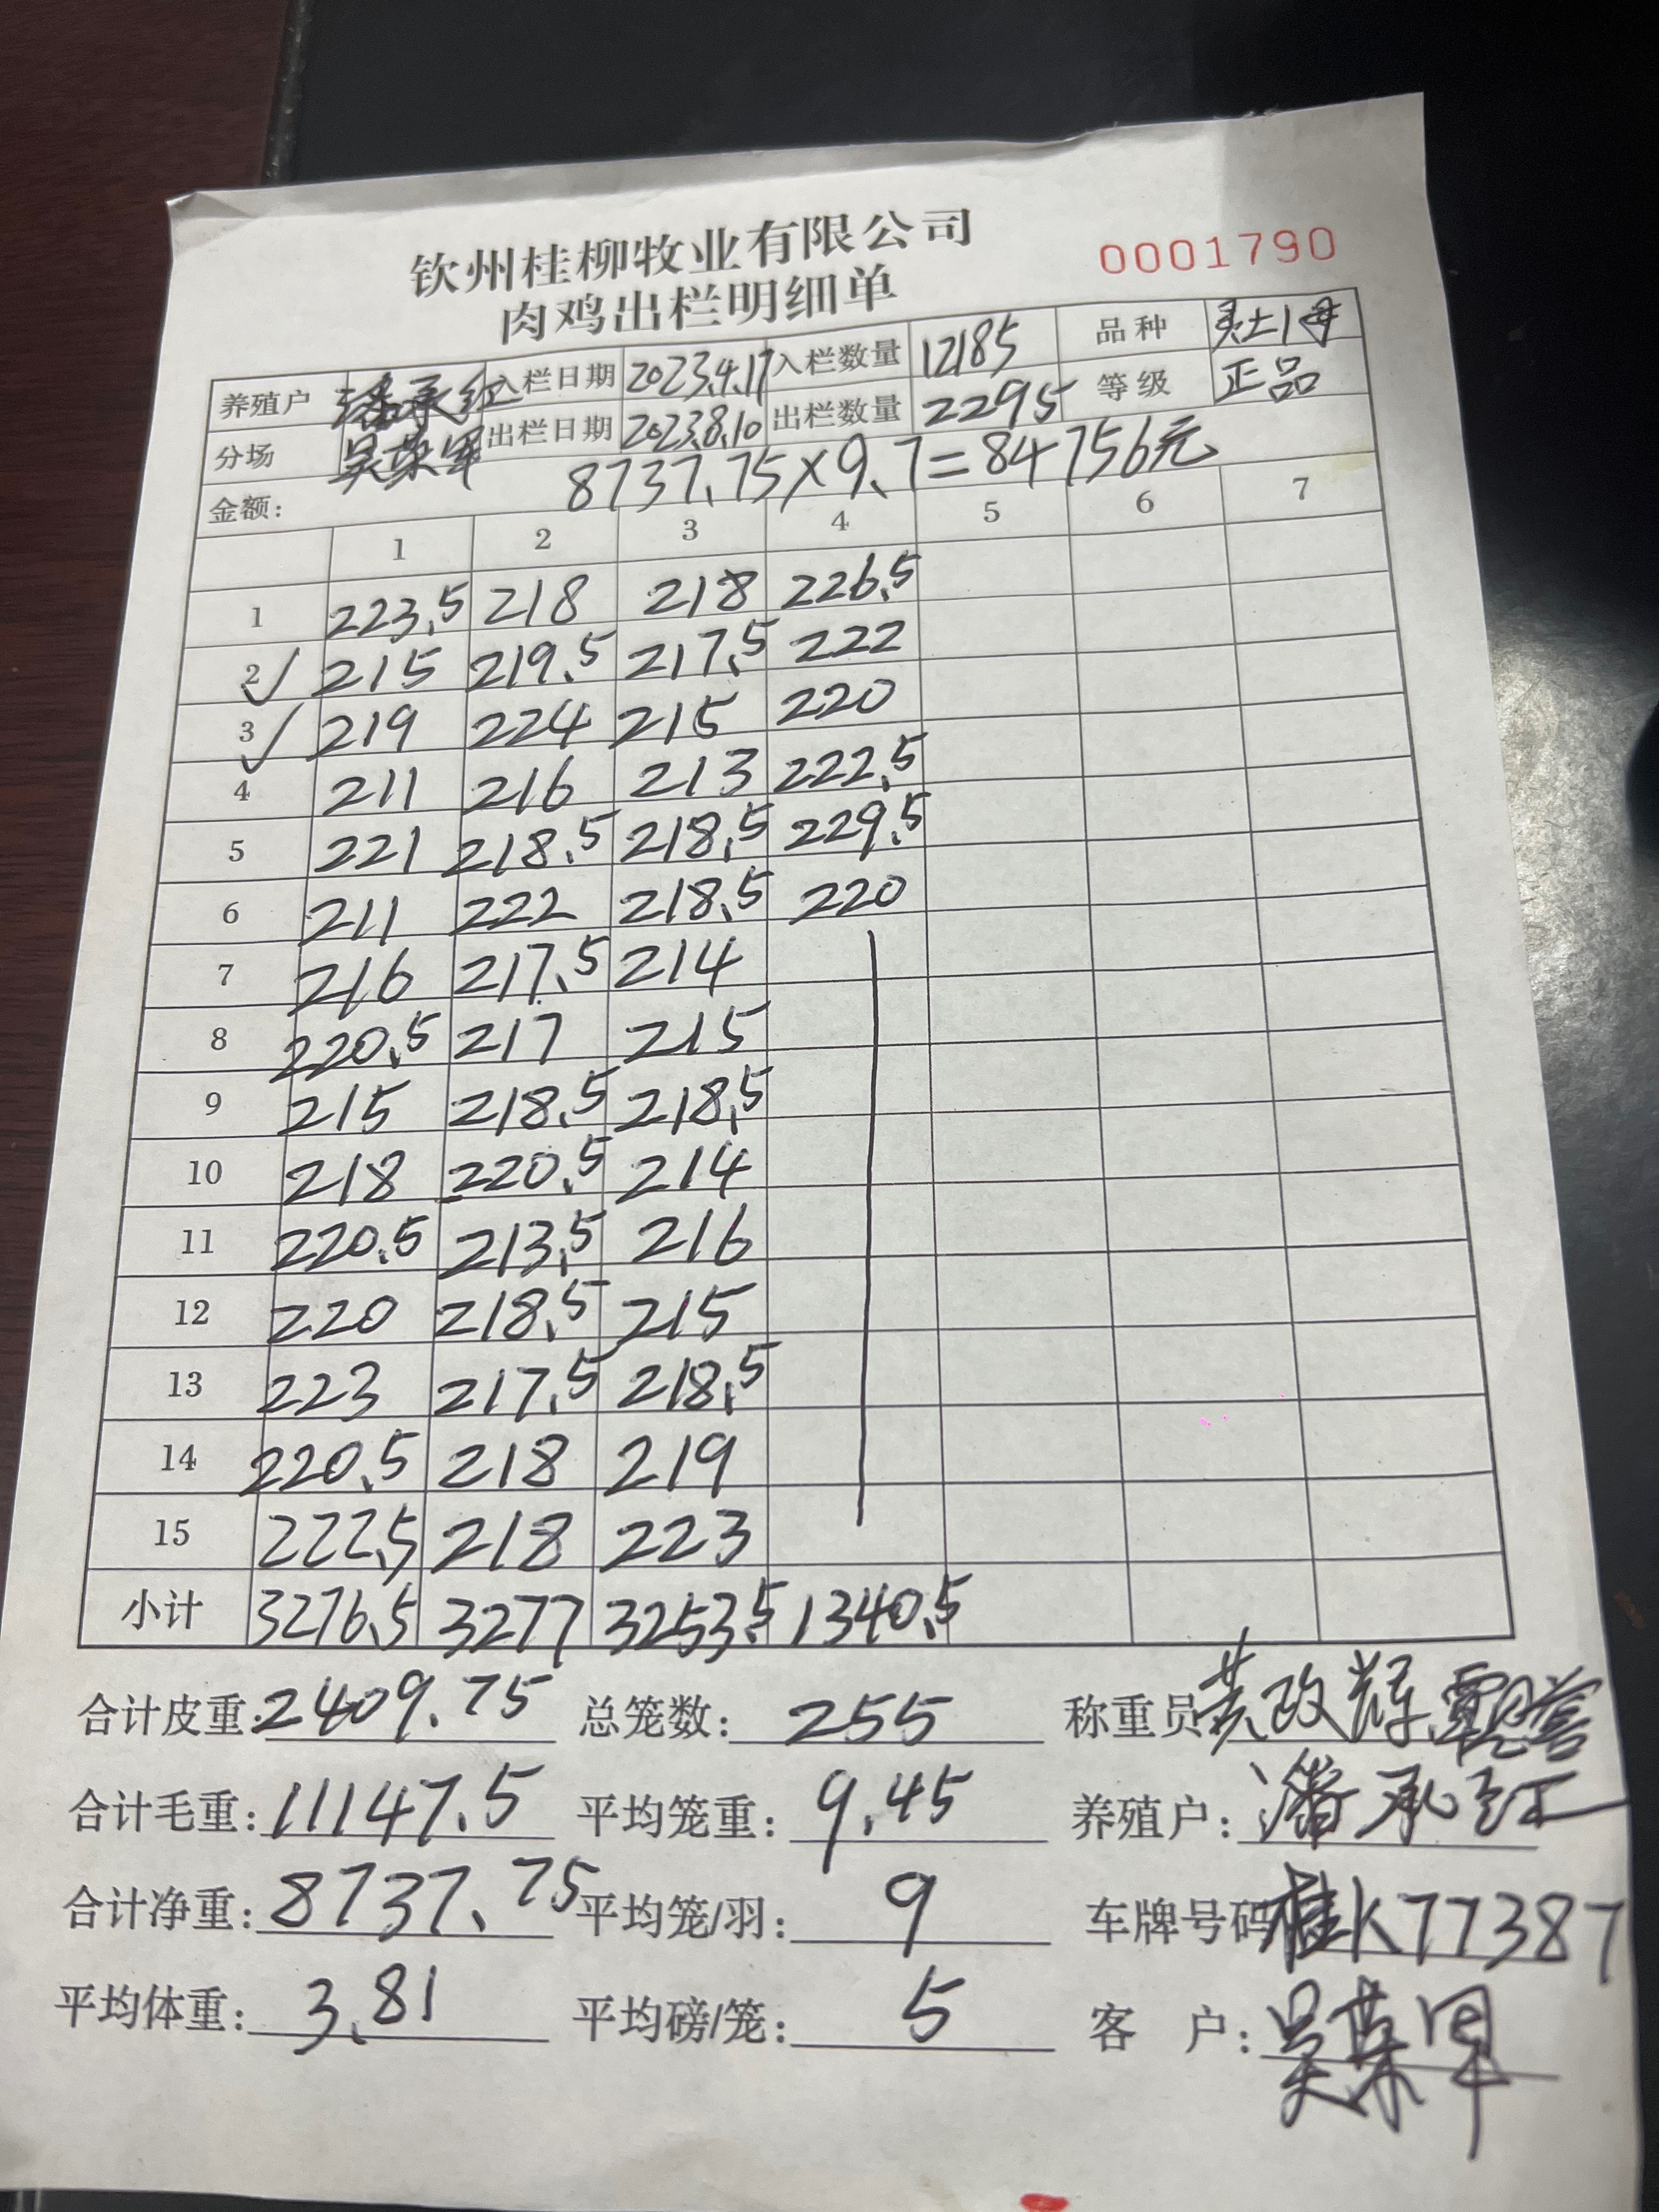 钦州桂柳牧业有限公司
肉鸡出栏明细单
0001790
养殖户 潘承红 入栏日期 2023.4.17 入栏数量 12185 品种 灵土1母
分场 吴荣军 出栏日期 2023.8.10 出栏数量 2295 等级 正品
金额: 8737.75×9.7=84756元
1 2 3 4 5 6 7
1 223.5 218 218 226.5
2✓ 215 219.5 217.5 222
3✓ 219 224 215 220
4 211 216 213 222.5
5 221 218.5 218.5 229.5
6 211 222 218.5 220
7 216 217.5 214
8 220.5 217 215
9 215 218.5 218.5
10 218 220.5 214
11 220.5 213.5 216
12 220 218.5 215
13 223 217.5 218.5
14 220.5 218 219
15 222.5 218 223
小计 3276.5 3277 3253.5 1340.5
合计皮重: 2409.75 总笼数: 255 称重员 黄政辉
合计毛重: 11147.5 平均笼重: 9.45 养殖户: 潘承红
合计净重: 8737.75 平均笼/羽: 9 车牌号码 桂K77387
平均体重: 3.81 平均磅/笼: 5 客户: 吴荣军